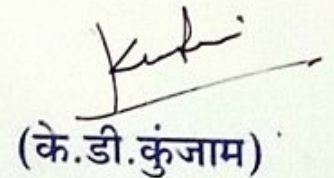 (के.डी.कुंजाम)